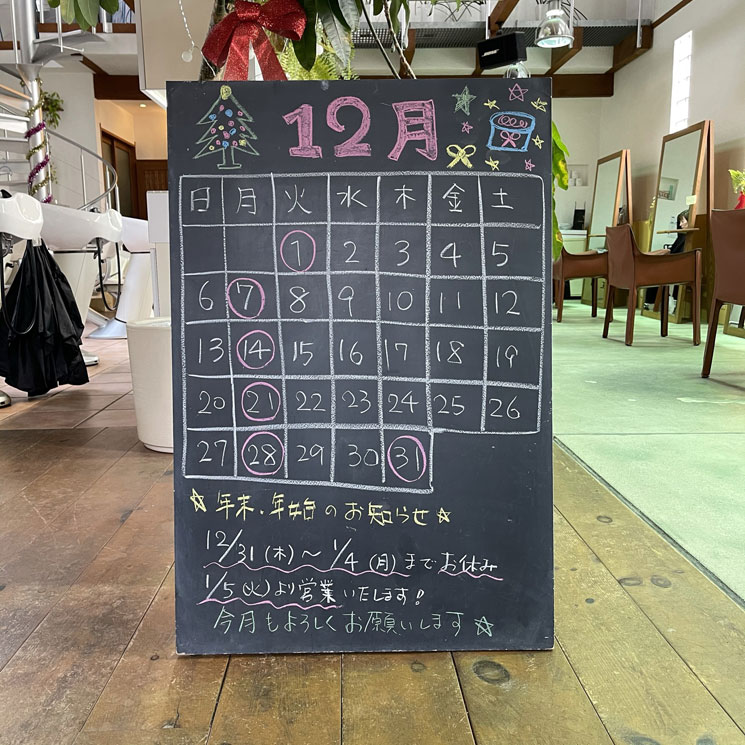 12月
日 月 火 水 木 金 土
1 2 3 4 5
6 7 8 9 10 11 12
13 14 15 16 17 18 19
20 21 22 23 24 25 26
27 28 29 30 31
☆年末・年始のお知らせ☆
12/31(木)～1/4(月)までお休み
1/5(火)より営業いたします!
今月もよろしくお願いします☆